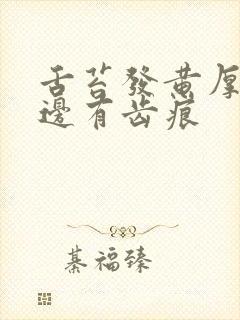 舌苔發黄厚
邊有齿痕
綦福臻